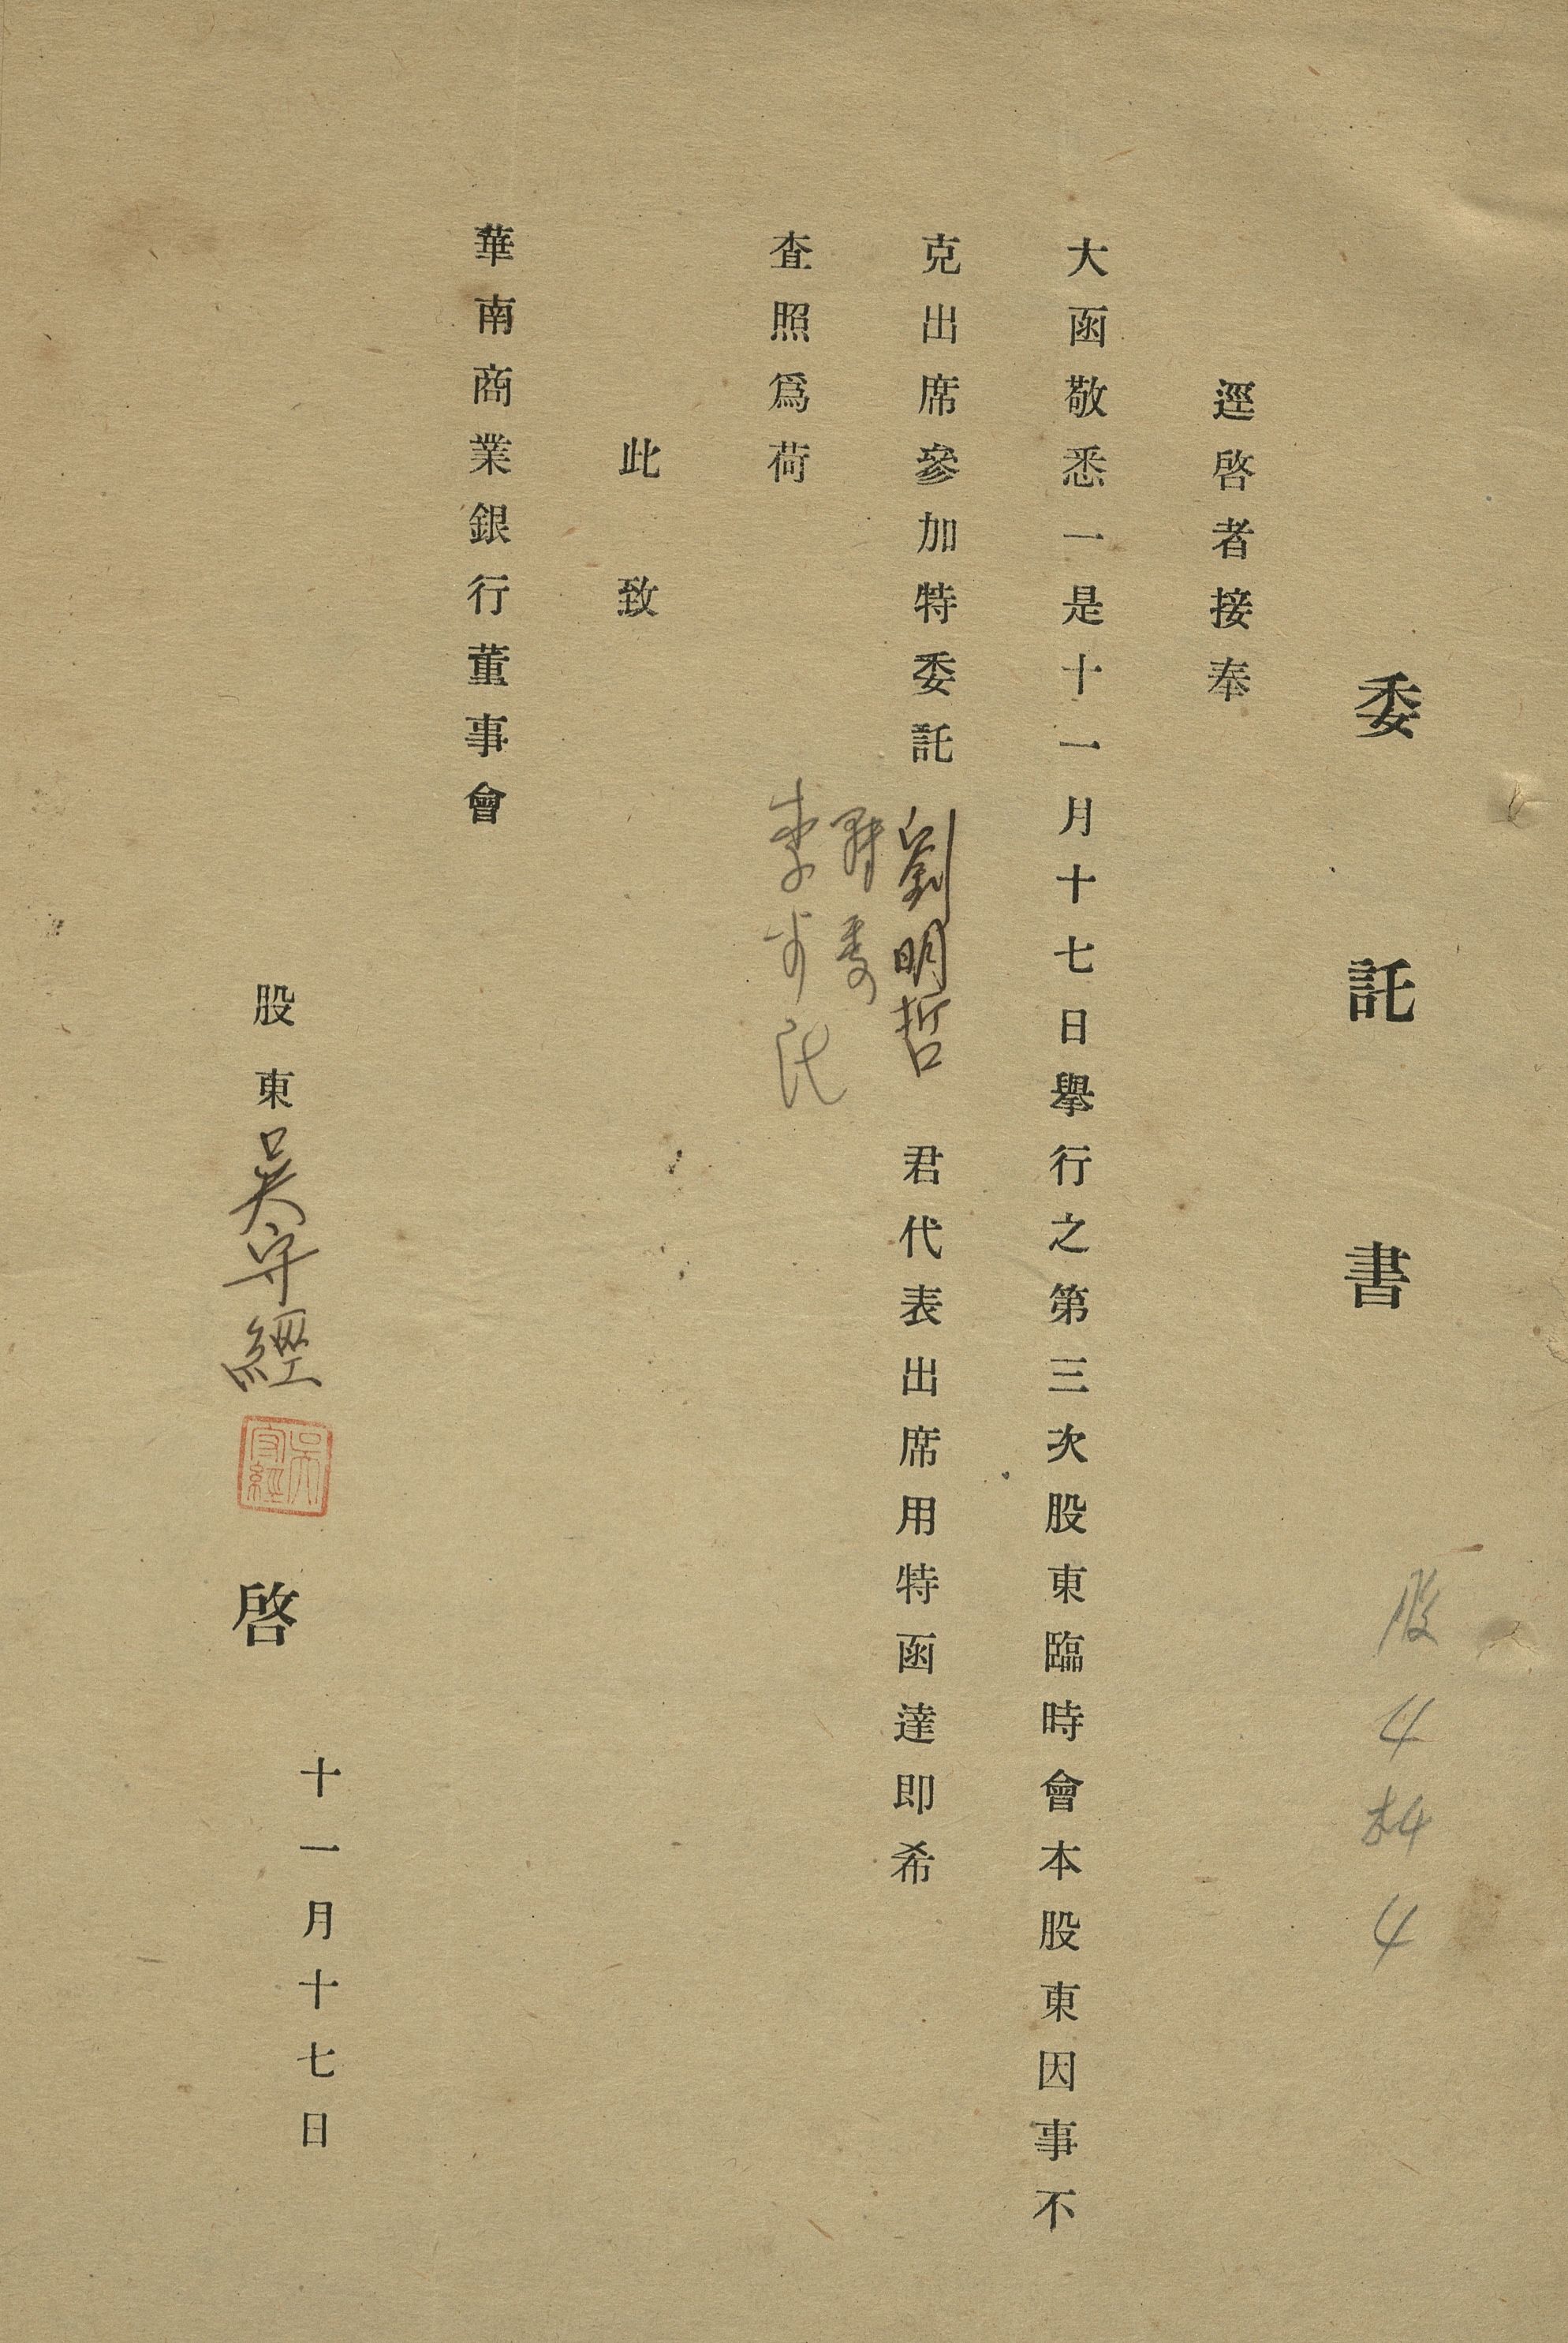 委託書
股 4 权 4
逕啓者接奉
大函敬悉一是十一月十七日舉行之第三次股東臨時會本股東因事不
克出席參加特委託劉明哲君代表出席用特函達即希
轉委
李
查照爲荷
此致
華南商業銀行董事會
股東吳守經啓
吳守經
十一月十七日